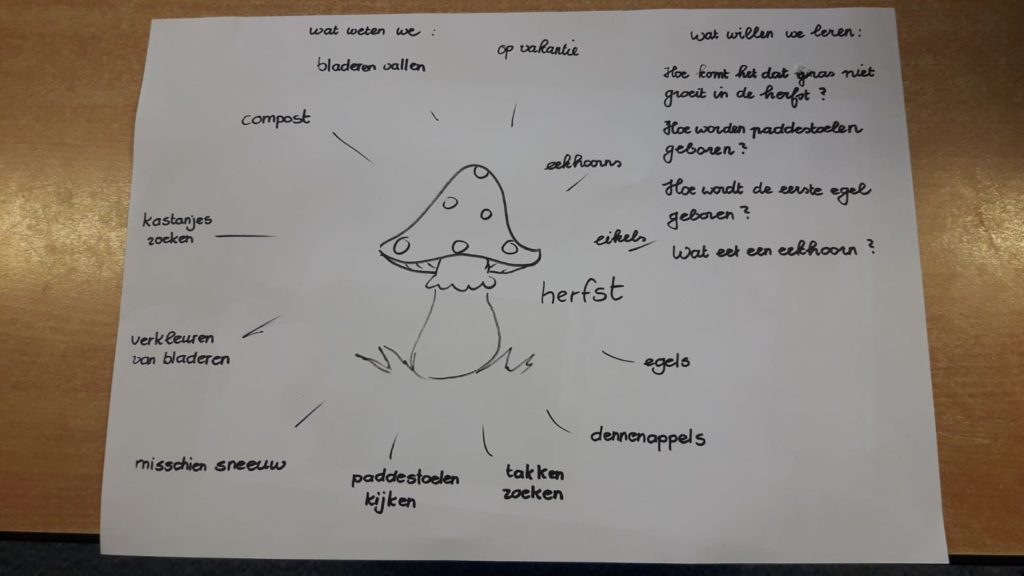 wat weten we :
op vakantie
bladeren vallen
compost
eekhoorns
kastanjes
zoeken
eikels
herfst
verkleuren
van bladeren
egels
dennenappels
misschien sneeuw
paddestoelen
kijken
takken
zoeken
wat willen we leren :
Hoe komt het dat gras niet
groeit in de herfst ?
Hoe worden paddestoelen
geboren ?
Hoe wordt de eerste egel
geboren ?
Wat eet een eekhoorn ?